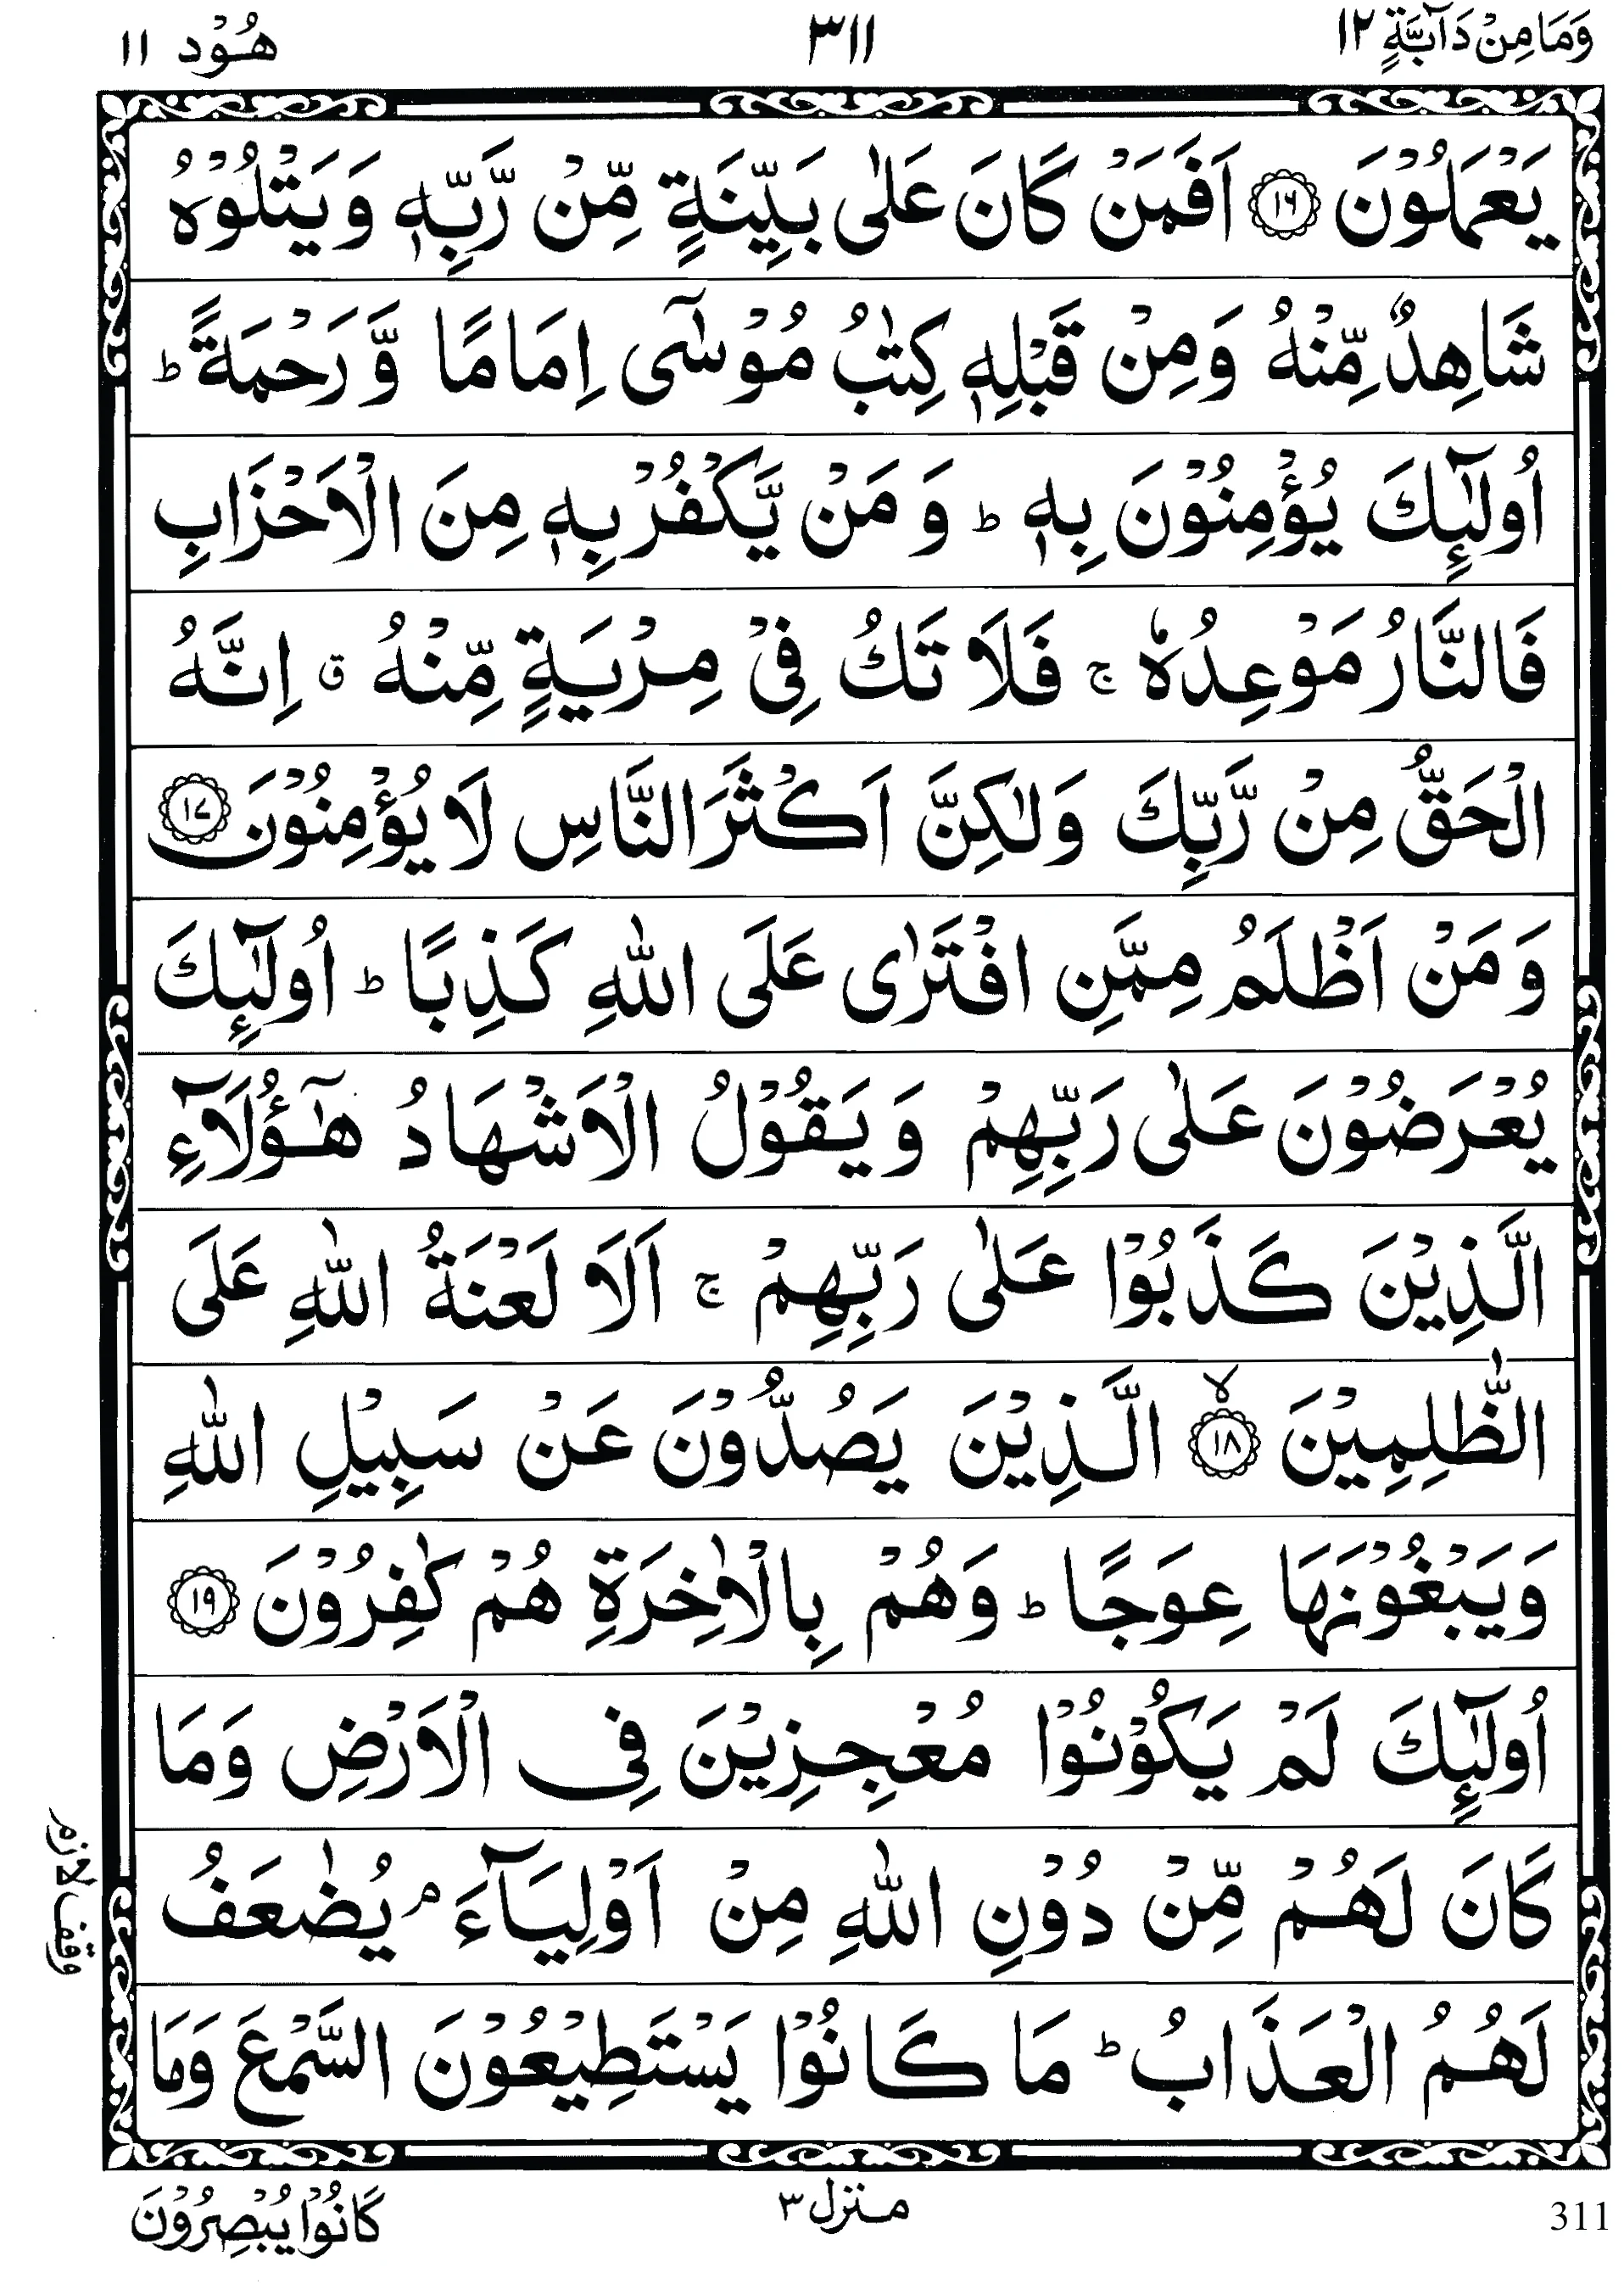 وَمَا مِنْ دَآبَّةٍ ١٢ ٣١١ هُوْد ١١
يَعْمَلُوْنَ ﴿١٦﴾ اَفَمَنْ كَانَ عَلٰى بَيِّنَةٍ مِّنْ رَّبِّهٖ وَيَتْلُوْهُ
شَاهِدٌ مِّنْهُ وَمِنْ قَبْلِهٖ كِتٰبُ مُوْسٰٓى اِمَامًا وَّرَحْمَةً ؕ
اُولٰٓئِكَ يُؤْمِنُوْنَ بِهٖ ؕ وَمَنْ يَّكْفُرْ بِهٖ مِنَ الْاَحْزَابِ
فَالنَّارُ مَوْعِدُهٗ ۚ فَلَا تَكُ فِيْ مِرْيَةٍ مِّنْهُ ق اِنَّهُ
الْحَقُّ مِنْ رَّبِّكَ وَلٰكِنَّ اَكْثَرَ النَّاسِ لَا يُؤْمِنُوْنَ ﴿١٧﴾
وَمَنْ اَظْلَمُ مِمَّنِ افْتَرٰى عَلَى اللّٰهِ كَذِبًا ؕ اُولٰٓئِكَ
يُعْرَضُوْنَ عَلٰى رَبِّهِمْ وَيَقُوْلُ الْاَشْهَادُ هٰٓؤُلَآءِ
الَّذِيْنَ كَذَبُوْا عَلٰى رَبِّهِمْ ۚ اَلَا لَعْنَةُ اللّٰهِ عَلَى
الظّٰلِمِيْنَ ﴿١٨﴾ ۙ الَّذِيْنَ يَصُدُّوْنَ عَنْ سَبِيْلِ اللّٰهِ
وَيَبْغُوْنَهَا عِوَجًا ؕ وَهُمْ بِالْاٰخِرَةِ هُمْ كٰفِرُوْنَ ﴿١٩﴾
اُولٰٓئِكَ لَمْ يَكُوْنُوْا مُعْجِزِيْنَ فِى الْاَرْضِ وَمَا
كَانَ لَهُمْ مِّنْ دُوْنِ اللّٰهِ مِنْ اَوْلِيَآءَ ۘ يُضٰعَفُ
لَهُمُ الْعَذَابُ ؕ مَا كَانُوْا يَسْتَطِيْعُوْنَ السَّمْعَ وَمَا
وقف لازم
كَانُوْا يُبْصِرُوْنَ منزل ٣ 311